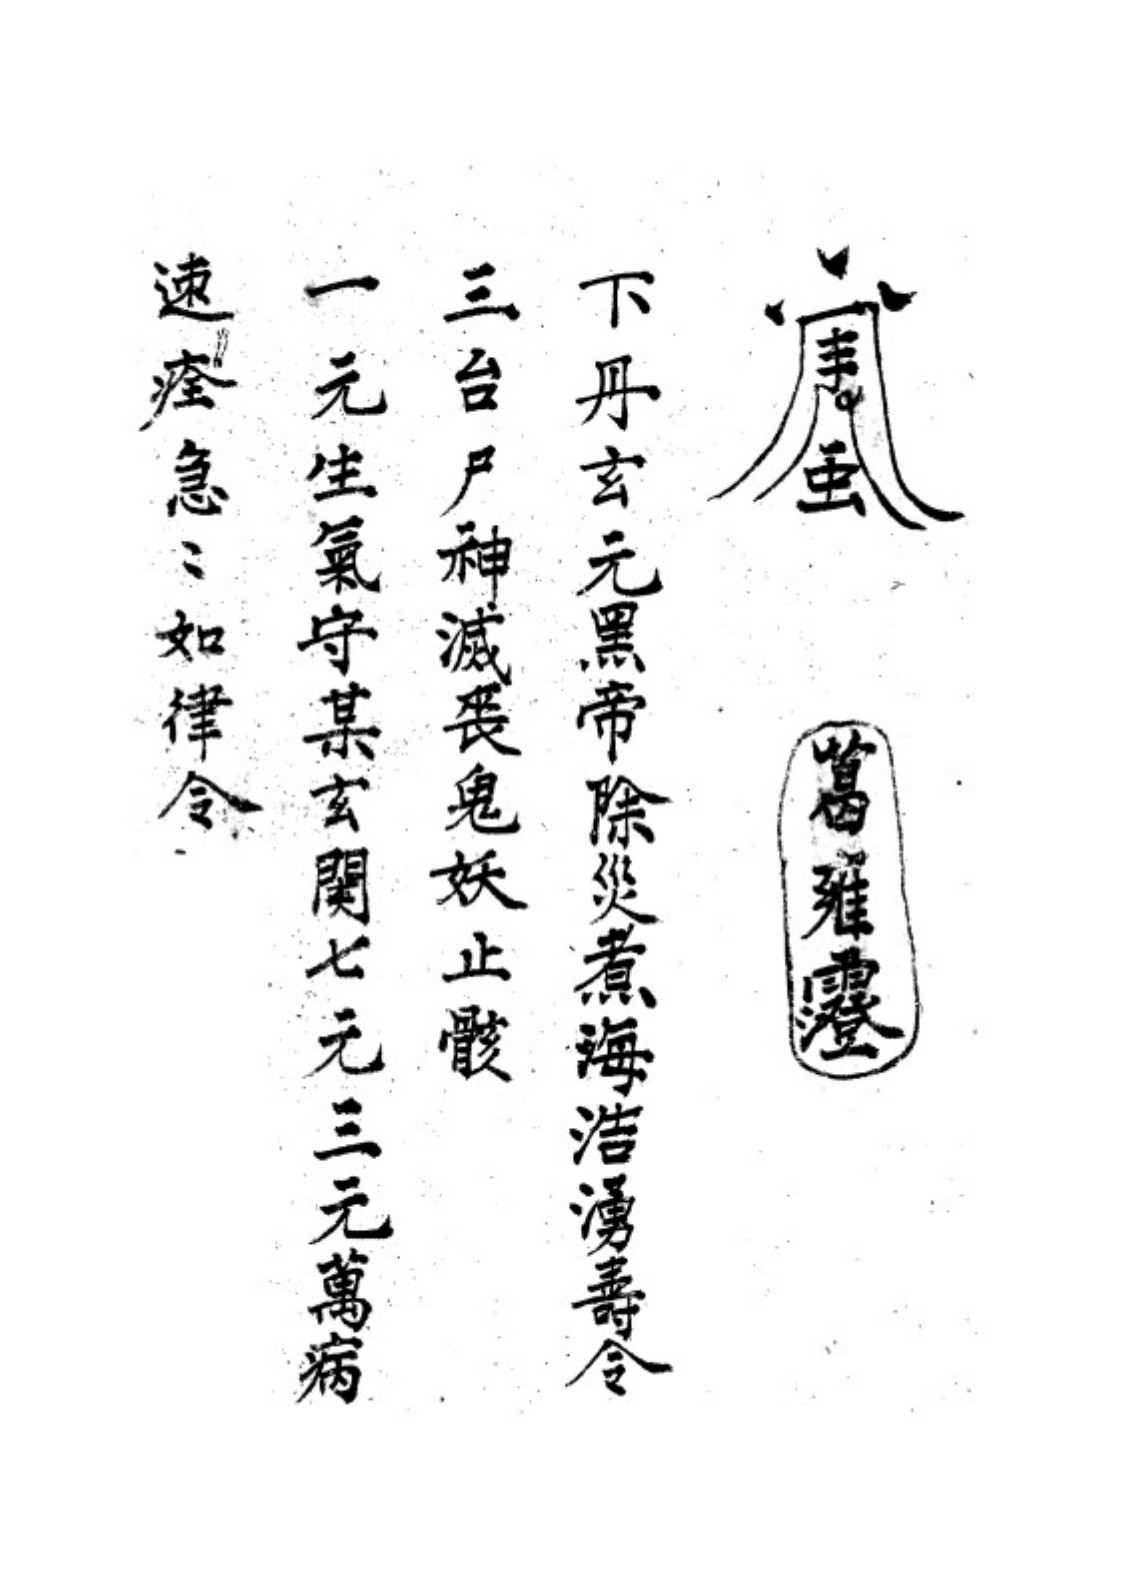 葛雍澄
下丹玄元黑帝除災煮海浩湧壽令
三台尸神滅喪鬼妖止骸
一元生氣守某玄関七元三元萬病
速痊急〻如律令